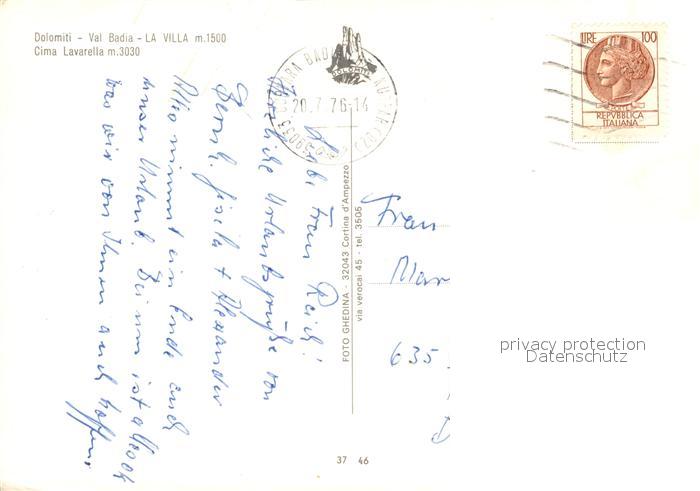 Dolomiti - Val Badia - LA VILLA m.1500
Cima Lavarella m.3030
DOLOMITI
20.7.76-14
LIRE 100
REPVBBLICA
ITALIANA
Liebe Frau Reich!
Herzliche Urlaubsgrüße von
Gisela + Alexander
Alles nimmt ein Ende auch
unser Urlaub. Bei uns ist alles ok
was wir von Ihnen auch hoffen.
FOTO GHEDINA - 32043 Cortina d'Ampezzo
via verocai 45 - tel. 3505
Frau
Mar
635
privacy protection
Datenschutz
37 46